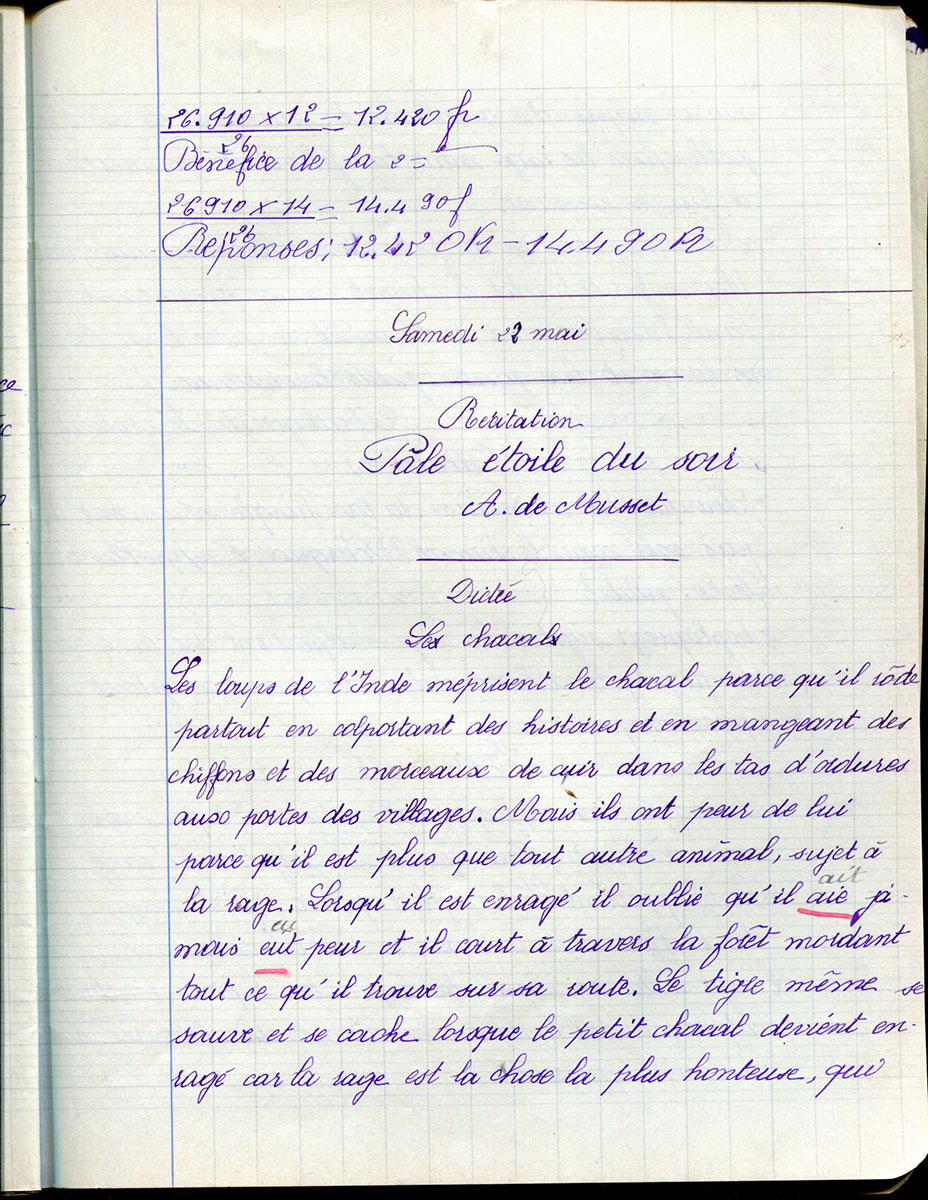 26.910 x 12 = 12.420 fr
26
Bénéfice de la 2=
26910 x 14 = 14.490f
26
Réponses; 12.420 fr - 14.490 fr
Samedi 22 mai
Recitation
Pâle étoile du soir
A. de Musset
Dictée
Les chacals
Les loups de l'Inde méprisent le chacal parce qu'il rôde
partout en colportant des histoires et en mangeant des
chiffons et des morceaux de cuir dans les tas d'ordures
aux portes des villages. Mais ils ont peur de lui
parce qu'il est plus que tout autre animal, sujet à
ait
la rage. Lorsqu'il est enragé il oublie qu'il aie ja-
eu
mais eut peur et il court à travers la forêt mordant
tout ce qu'il trouve sur sa route. Le tigre même se
sauve et se cache lorsque le petit chacal devient en-
ragé car la rage est la chose la plus honteuse, qui